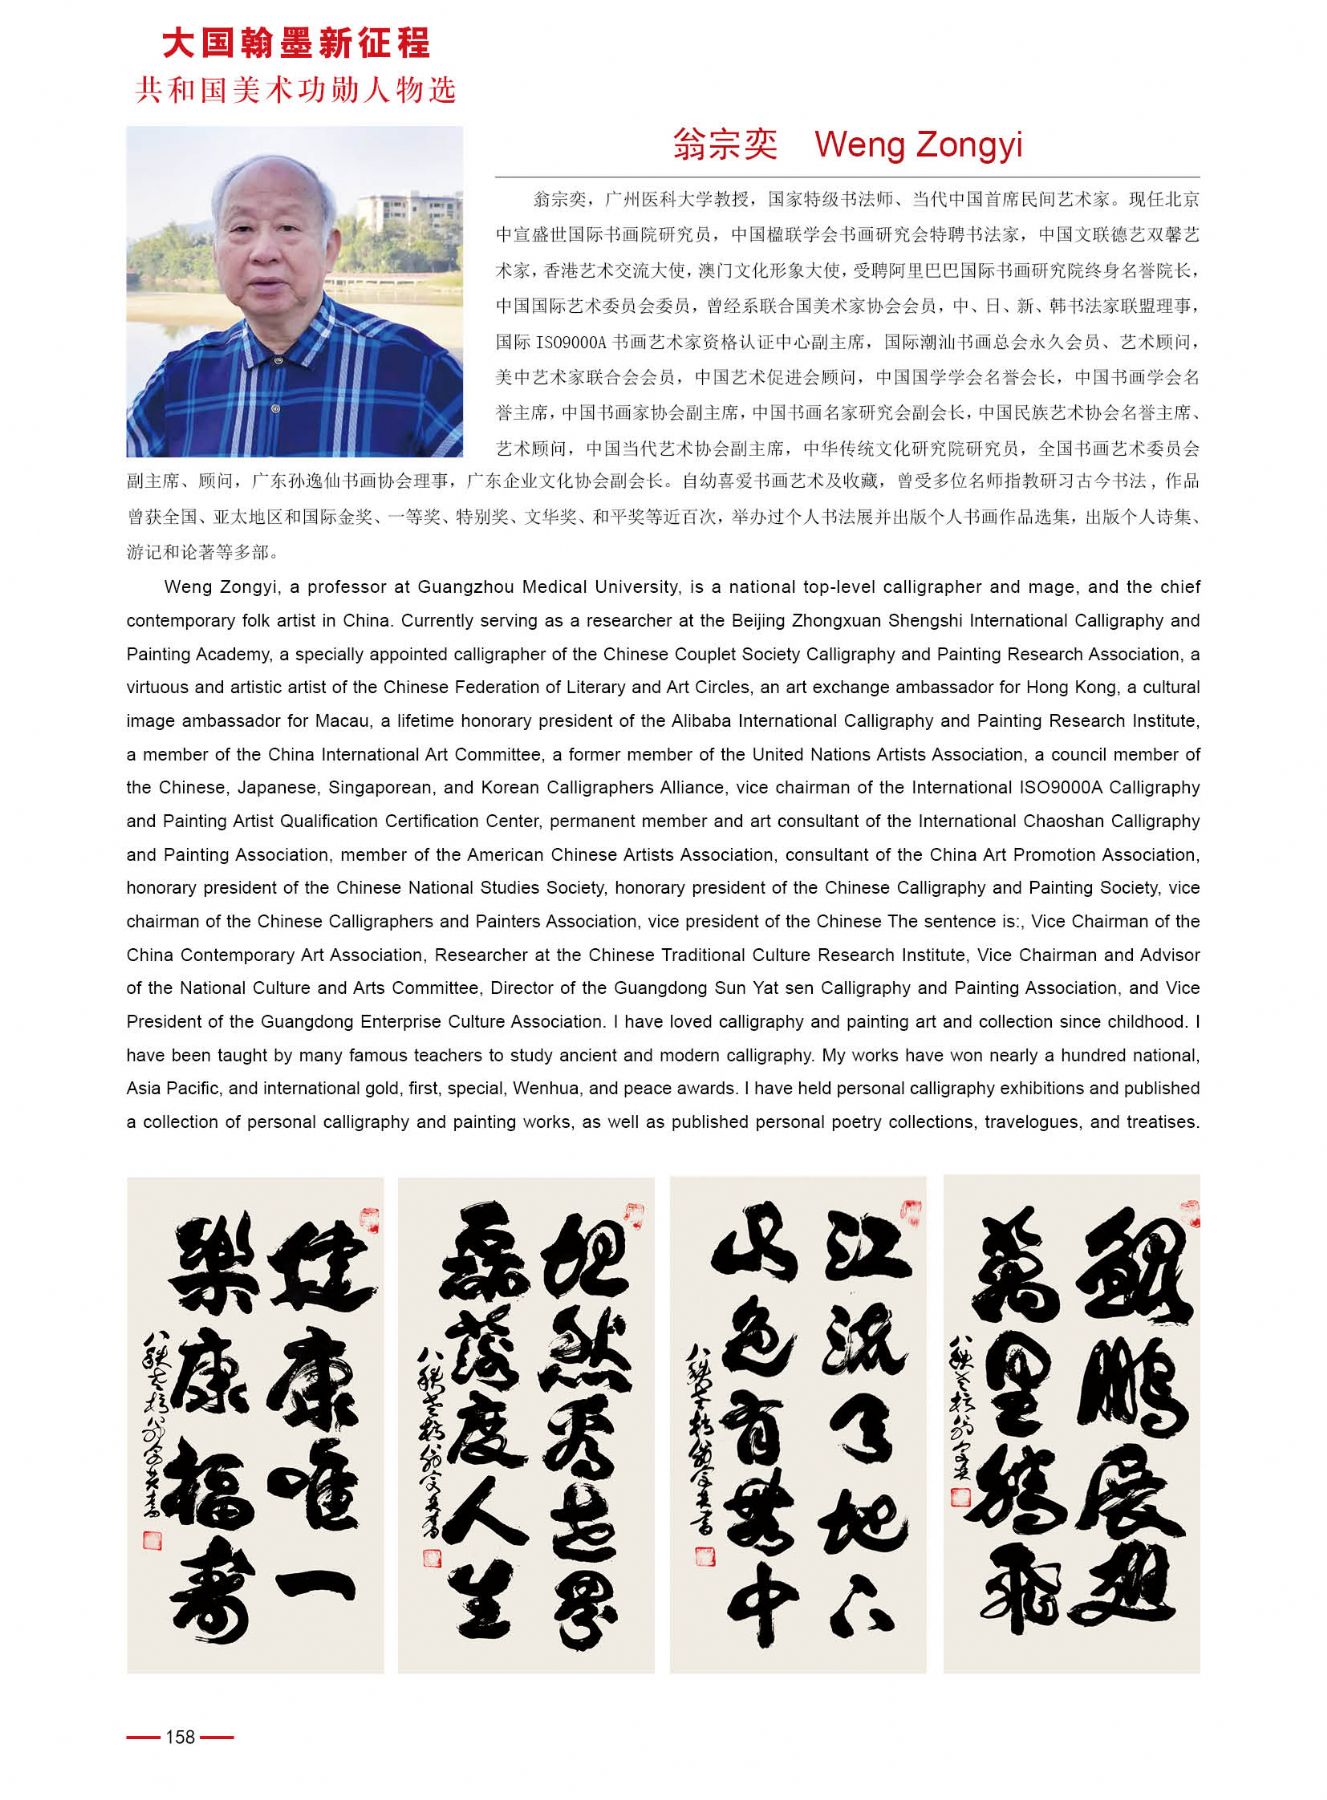 大国翰墨新征程
共和国美术功勋人物选
翁宗奕 Weng Zongyi
翁宗奕，广州医科大学教授，国家特级书法师、当代中国首席民间艺术家。现任北京
中宣盛世国际书画院研究员，中国楹联学会书画研究会特聘书法家，中国文联德艺双馨艺
术家，香港艺术交流大使，澳门文化形象大使，受聘阿里巴巴国际书画研究院终身名誉院长，
中国国际艺术委员会委员，曾经系联合国美术家协会会员，中、日、新、韩书法家联盟理事，
国际 ISO9000A 书画艺术家资格认证中心副主席，国际潮汕书画总会永久会员、艺术顾问，
美中艺术家联合会会员，中国艺术促进会顾问，中国国学学会名誉会长，中国书画学会名
誉主席，中国书画家协会副主席，中国书画名家研究会副会长，中国民族艺术协会名誉主席、
艺术顾问，中国当代艺术协会副主席，中华传统文化研究院研究员，全国书画艺术委员会
副主席、顾问，广东孙逸仙书画协会理事，广东企业文化协会副会长。自幼喜爱书画艺术及收藏，曾受多位名师指教研习古今书法，作品
曾获全国、亚太地区和国际金奖、一等奖、特别奖、文华奖、和平奖等近百次，举办过个人书法展并出版个人书画作品选集，出版个人诗集、
游记和论著等多部。
Weng Zongyi, a professor at Guangzhou Medical University, is a national top-level calligrapher and mage, and the chief
contemporary folk artist in China. Currently serving as a researcher at the Beijing Zhongxuan Shengshi International Calligraphy and
Painting Academy, a specially appointed calligrapher of the Chinese Couplet Society Calligraphy and Painting Research Association, a
virtuous and artistic artist of the Chinese Federation of Literary and Art Circles, an art exchange ambassador for Hong Kong, a cultural
image ambassador for Macau, a lifetime honorary president of the Alibaba International Calligraphy and Painting Research Institute,
a member of the China International Art Committee, a former member of the United Nations Artists Association, a council member of
the Chinese, Japanese, Singaporean, and Korean Calligraphers Alliance, vice chairman of the International ISO9000A Calligraphy
and Painting Artist Qualification Certification Center, permanent member and art consultant of the International Chaoshan Calligraphy
and Painting Association, member of the American Chinese Artists Association, consultant of the China Art Promotion Association,
honorary president of the Chinese National Studies Society, honorary president of the Chinese Calligraphy and Painting Society, vice
chairman of the Chinese Calligraphers and Painters Association, vice president of the Chinese The sentence is:, Vice Chairman of the
China Contemporary Art Association, Researcher at the Chinese Traditional Culture Research Institute, Vice Chairman and Advisor
of the National Culture and Arts Committee, Director of the Guangdong Sun Yat sen Calligraphy and Painting Association, and Vice
President of the Guangdong Enterprise Culture Association. I have loved calligraphy and painting art and collection since childhood. I
have been taught by many famous teachers to study ancient and modern calligraphy. My works have won nearly a hundred national,
Asia Pacific, and international gold, first, special, Wenhua, and peace awards. I have held personal calligraphy exhibitions and published
a collection of personal calligraphy and painting works, as well as published personal poetry collections, travelogues, and treatises.
健康唯一
樂康福壽
坦然为世界
磊落度人生
江流天地
山色有無中
鯤鵬展翅
萬里騰飛
158